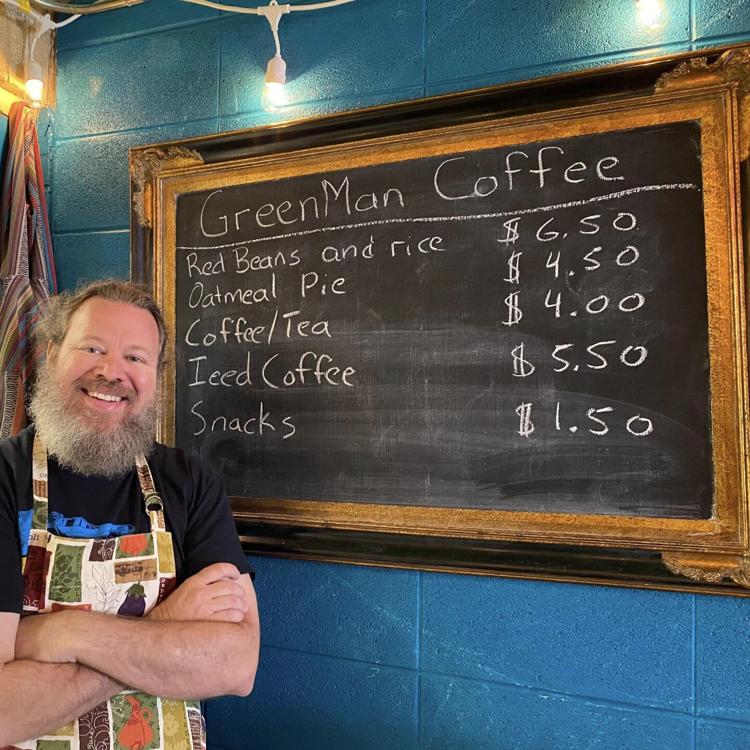 GreenMan Coffee
Red Beans and rice $ 6.50
Oatmeal Pie $ 4.50
Coffee/Tea $ 4.00
Iced Coffee $ 5.50
Snacks $ 1.50